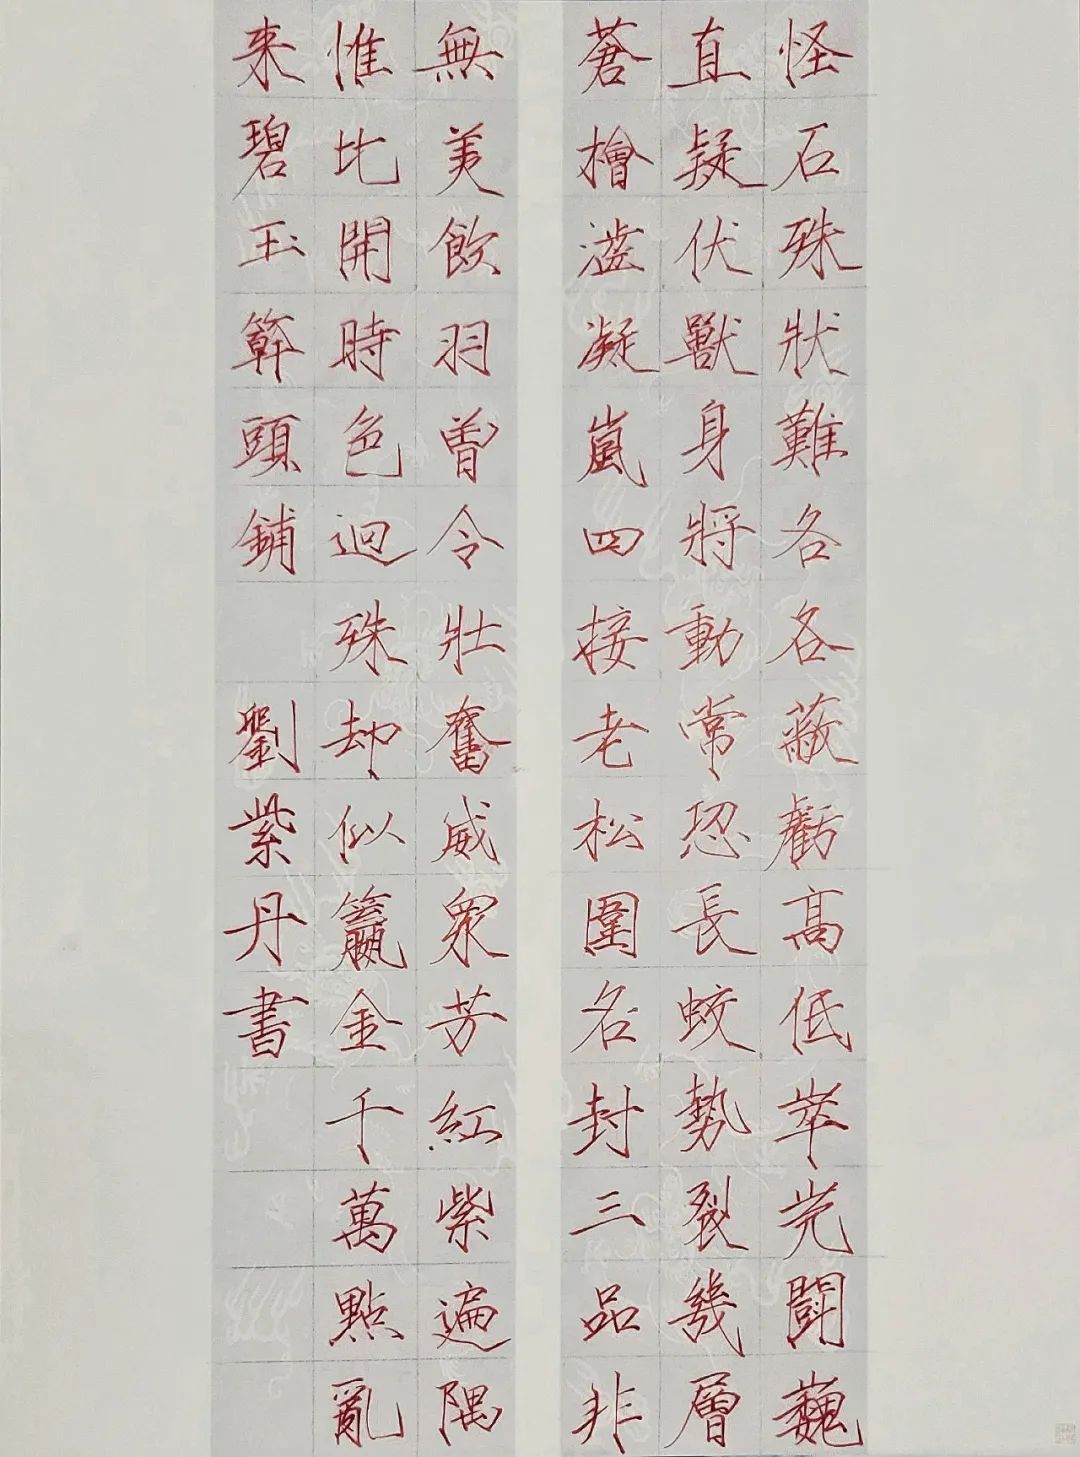 怪石殊狀難各各蔽虧高低举党鬪巍
直疑伏獸身將動常恐長蛟勢裂幾層
蒼檜澁凝嵐四接老松圍名封三品非
無美飲羽曽令壯奮威衆芳紅紫遍隅
惟比開時色迥殊却似籯金千萬點亂
来碧玉簳頭鋪
劉紫丹書